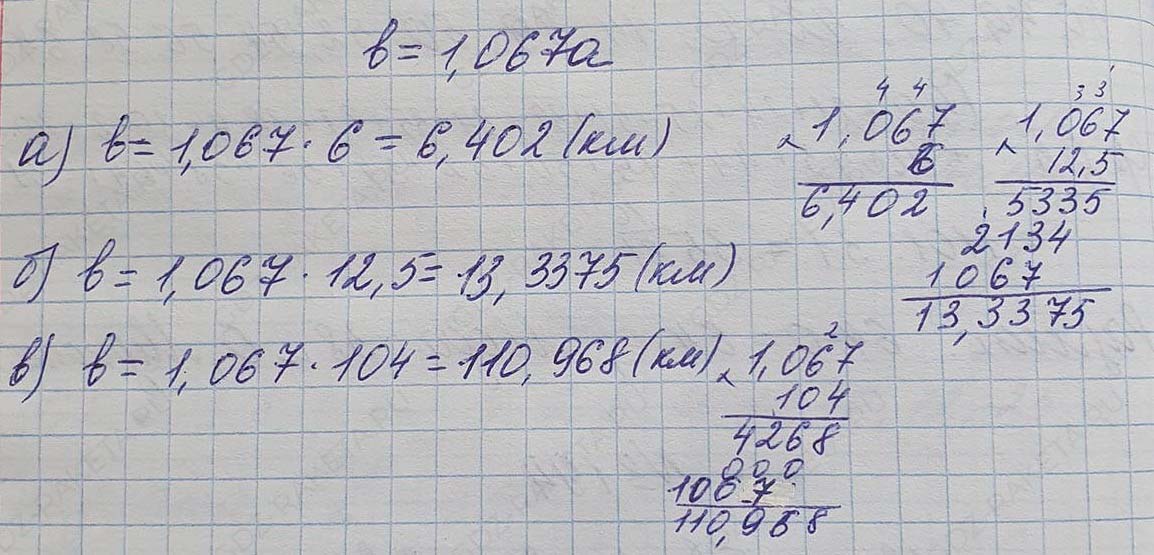 в = 1,067а
а) в = 1,067 · 6 = 6,402 (км)
4 4
× 1,067
6
6,402
1
3 3
× 1,067
12,5
1
5335
2134
1067
13,3375
б) в = 1,067 · 12,5 = 13,3375 (км)
в) в = 1,067 · 104 = 110,968 (км)
2
× 1,067
104
4268
000
1067
110,968